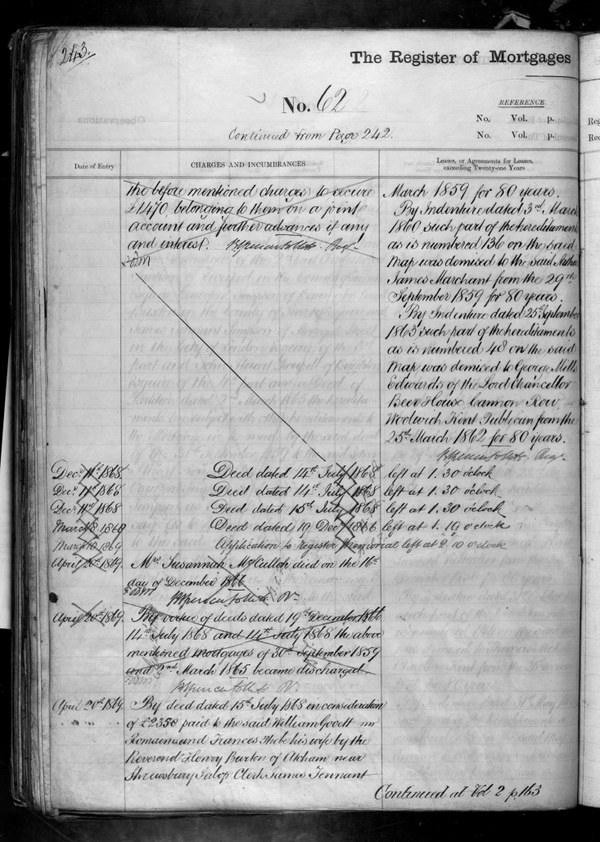 243.
The Register of Mortgages
No. 62
REFERENCE
No. Vol. p.
No. Vol. p.
Continued from Page 242.
Date of Entry
CHARGES AND INCUMBRANCES
Leases, or Agreements for Leases,
exceeding Twenty-one Years
the before mentioned charges to receive
£1470 belonging to them on a joint
account and further advances if any
and interest. Reg.
March 1859 for 80 years.
By Indenture dated 3rd March
1860 such part of the hereditaments
as is numbered 136 on the said
map was demised to the said
James Marchant from the 29th
September 1859 for 80 years.
By Indenture dated 25th September
1863 such part of the hereditaments
as is numbered 48 on the said
map was demised to George Mills
Edwards of the Lord Chancellor
Beer House Cannon Row
Woolwich Kent Publican from the
25th March 1862 for 80 years.
Reg.
Decr. 11th 1868 Deed dated 14th July 1868 left at 1.30 o'clock
Decr. 11th 1868 Deed dated 14th July 1868 left at 1.30 o'clock
Decr. 11th 1868 Deed dated 15th July 1868 left at 1.30 o'clock
March 1869 Deed dated 19 Decr. 1866 left at 1. o'clock
March 1869 Application to register memorial left at o'clock
April 20th 1869 Mrs. Susannah McCulloh died on the
day of December 1866
April 20th 1869. By virtue of deeds dated 19th December 1866
14th July 1868 and 14th July 1868 the above
mentioned mortgages of 30th September 1859
and 2nd March 1865 became discharged
April 20th 1869 By deed dated 15th July 1868 in consideration
of £2358 paid to the said William
Romaine and Frances his wife by the
Reverend Henry Burton of Atcham near
Shrewsbury Salop Clerk James Tennant
Continued at Vol 2 p. 163